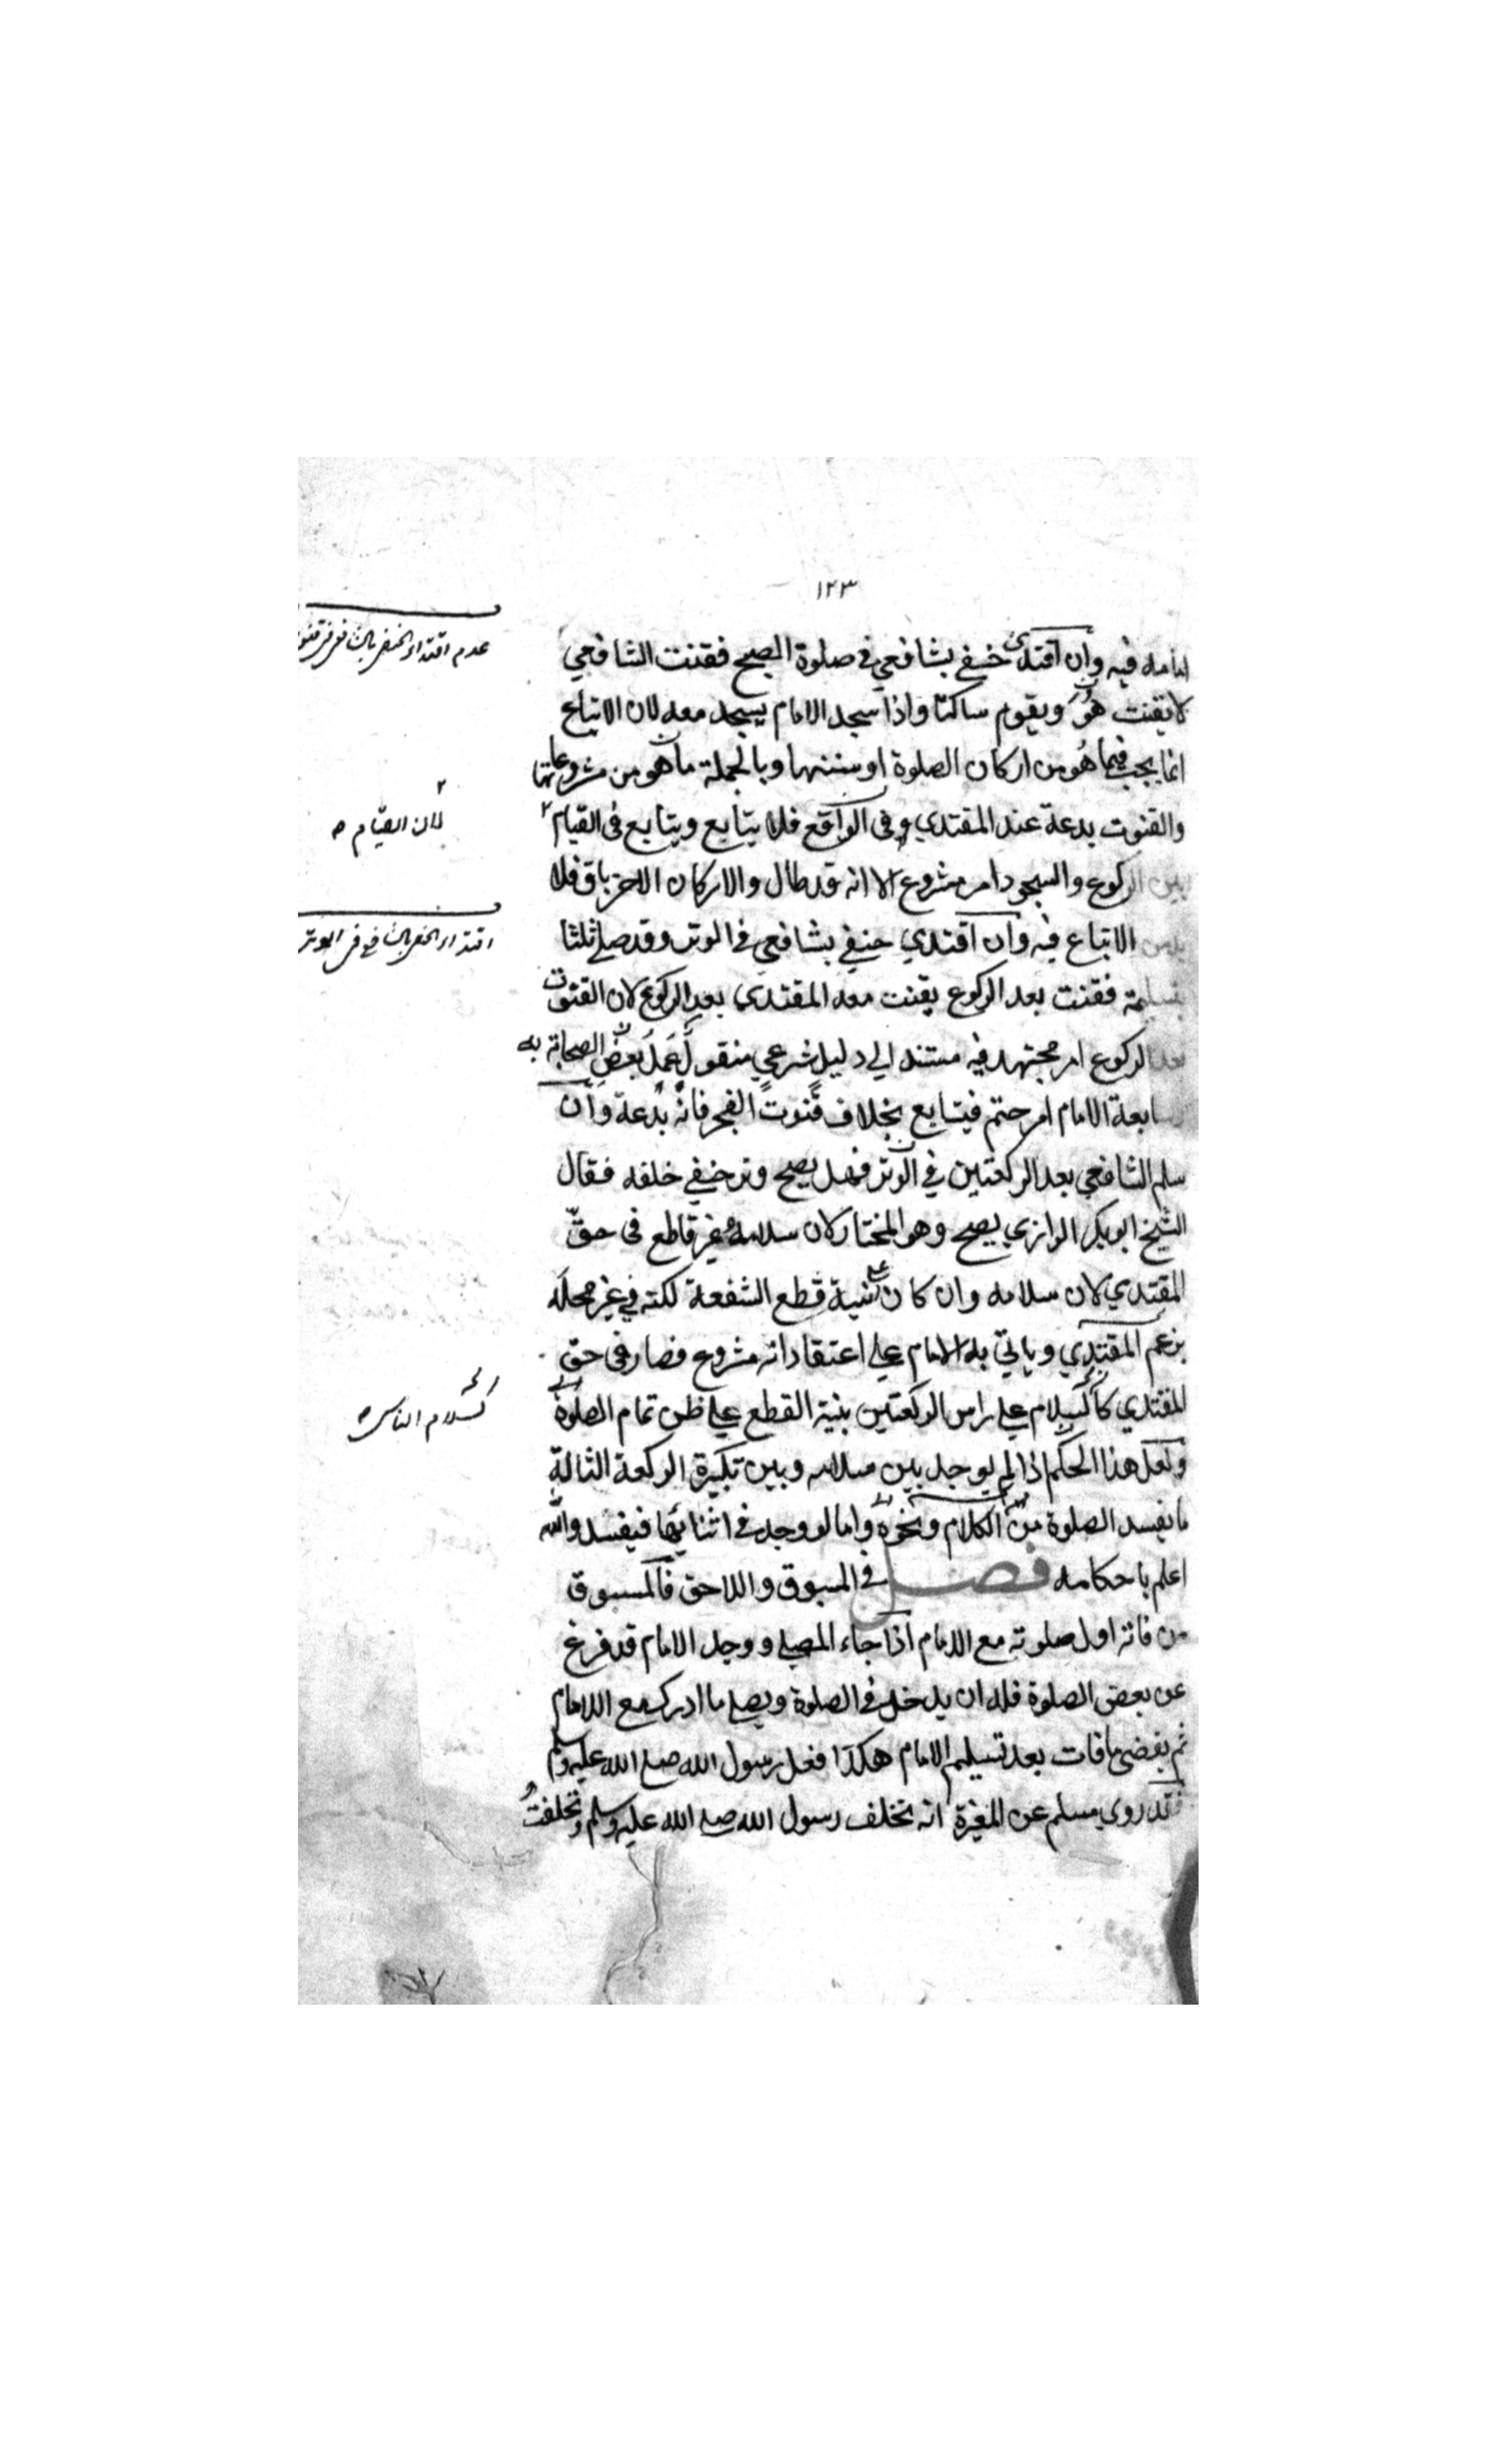 ١٢٣
امامه فيه وان اقتدى حنفي بشافعي في صلوة الصبح فقنت الشافعي
لا يقنت هو ويقوم ساكتا واذا سجد الامام يسجد معه لان الاتباع
انما يجب فيما هو من اركان الصلوة او سننها وبالجملة ما هو من مشروعاتها
والقنوت بدعة عند المقتدي وفى الواقع فلا يتابع ويتابع فى القيام ٢
بين الركوع والسجود امر مشروع الا انه قد طال والاركان الاخر باق فلا
الاتباع فيه وان اقتدي حنفي بشافعي في الوتر وقد صلي ثلثا
بتسليمة فقنت بعد الركوع يقنت معه المقتدى بعد الركوع لان القنوت
بعد الركوع امر مجتهد فيه مستند الي دليل شرعي منقول عمل بعض الصحابة به
ابعة الامام امر حتم فيتابع بخلاف قنوت الفجر فانه بدعة وان
سلم الشافعي بعد الركعتين في الوتر فهل يصح وتر حنفي خلفه فقال
الشيخ ابو بكر الرازي يصح وهو المختار لان سلامه غير قاطع فى حق
المقتدي لان سلامه وان كان علي نية قطع الشفعة لكنه في غير محله
بزعم المقتدي وياتي به الامام علي اعتقاد انه مشروع فصار فى حق
المقتدي كالسلام علي راس الركعتين بنية القطع علي ظن تمام الصلوة
ولعل هذا الحكم اذا لم يوجد بين سلامه وبين تكبيرة الركعة الثالثة
ما يفسد الصلوة من الكلام ونحوه واما لو وجد في اثنائها فيفسد والله
اعلم باحكامه فصل في المسبوق واللاحق فالمسبوق
من فاته اول صلوته مع الامام اذا جاء المصلي ووجد الامام قد فرغ
عن بعض الصلوة فله ان يدخل في الصلوة ويصلي ما ادرك مع الامام
ثم يقضى ما فات بعد تسليم الامام هكذا فعل رسول الله صلي الله عليه وسلم
فقد روي مسلم عن المغيرة انه تخلف رسول الله صلي الله عليه وسلم وتخلفت
عدم اقتداء الحنفي بالشافعي في قنوت
٢
لان القيام
اقتداء الحنفي بالشافعي في الوتر
كسلام الناس